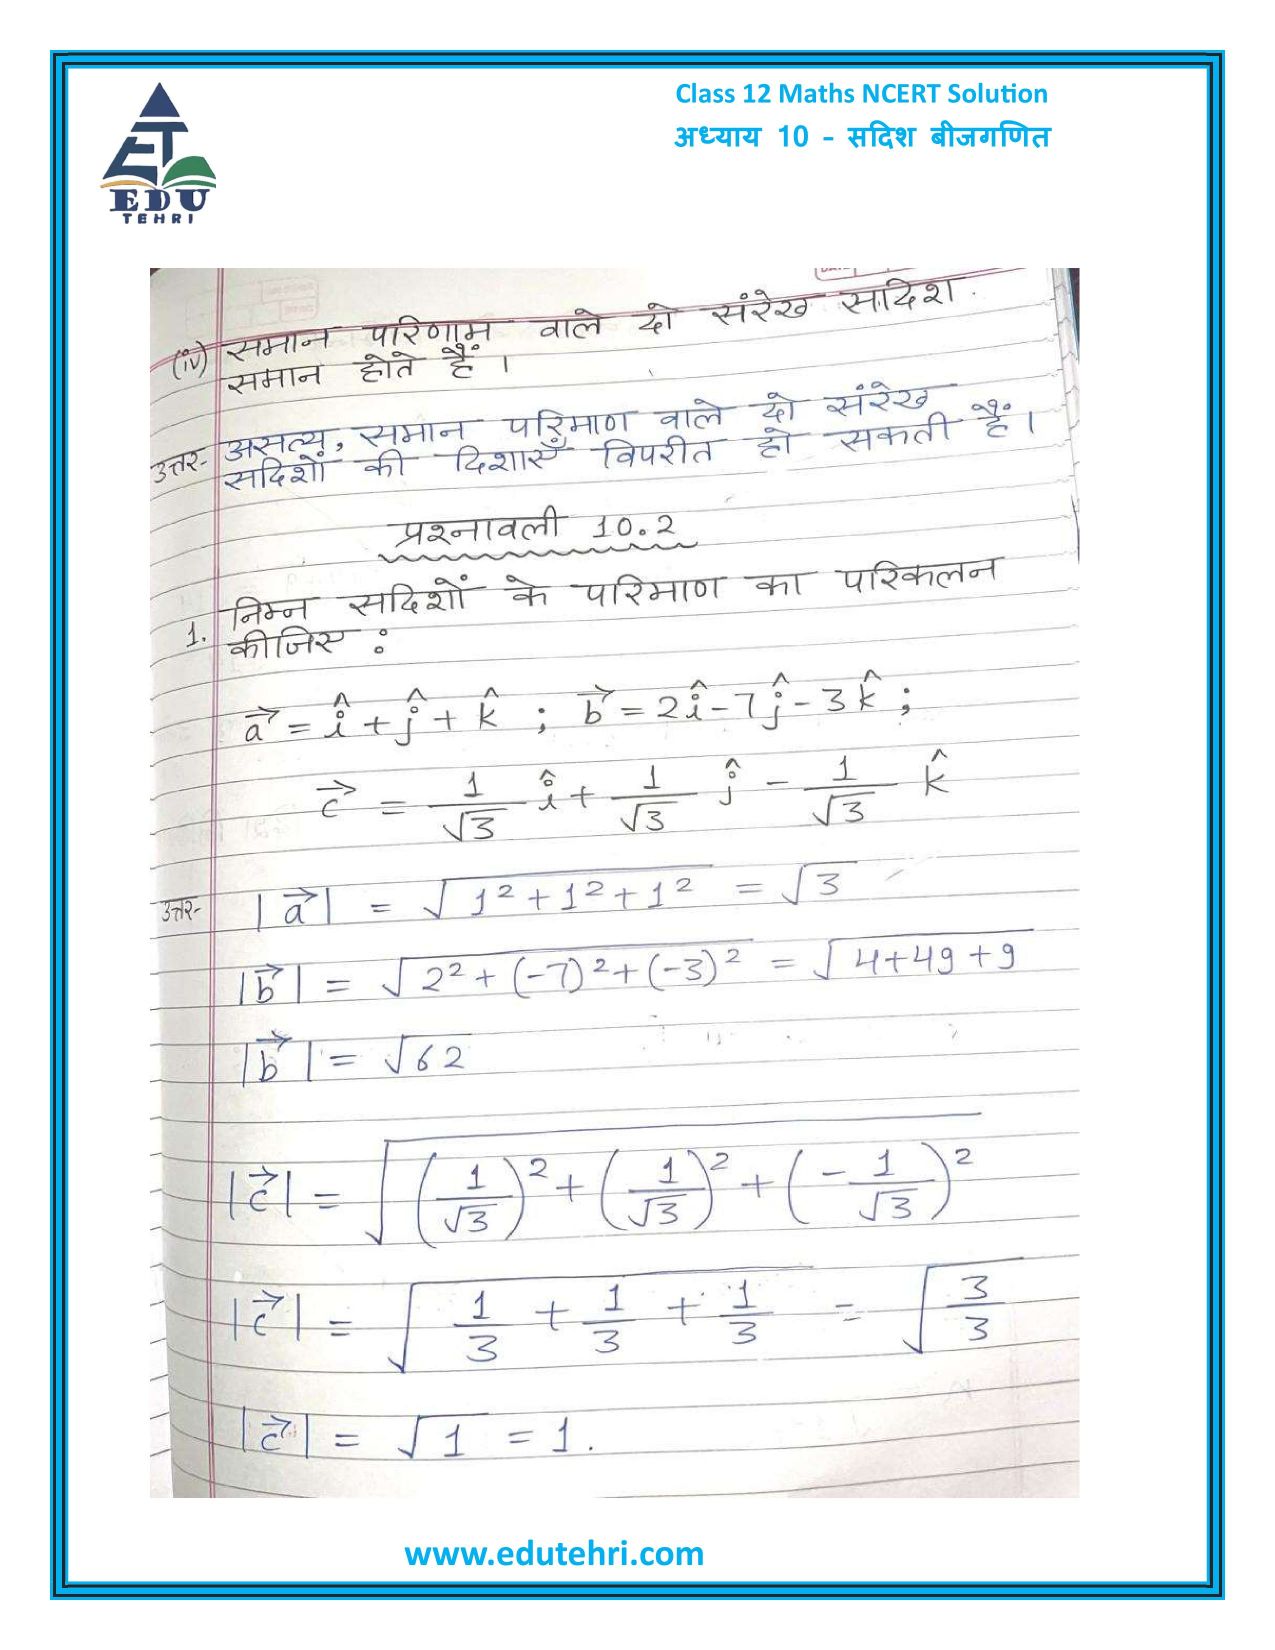 Class 12 Maths NCERT Solution
अध्याय 10 - सदिश बीजगणित
EDU
TEHRI
(iv) समान परिणाम वाले दो संरेख सदिश
समान होते हैं।
उत्तर- असत्य, समान परिमाण वाले दो संरेख
सदिशों की दिशाएँ विपरीत हो सकती हैं।
प्रश्नावली 10.2
1. निम्न सदिशों के परिमाण का परिकलन
कीजिए :
a⃗ = î + ĵ + k̂ ; b⃗ = 2î - 7ĵ - 3k̂ ;
c⃗ = 1/√3 î + 1/√3 ĵ - 1/√3 k̂
उत्तर- |a⃗| = √(1² + 1² + 1²) = √3
|b⃗| = √(2² + (-7)² + (-3)²) = √(4+49+9)
|b⃗| = √62
|c⃗| = √((1/√3)² + (1/√3)² + (-1/√3)²)
|c⃗| = √(1/3 + 1/3 + 1/3) = √(3/3)
|c⃗| = √1 = 1.
www.edutehri.com